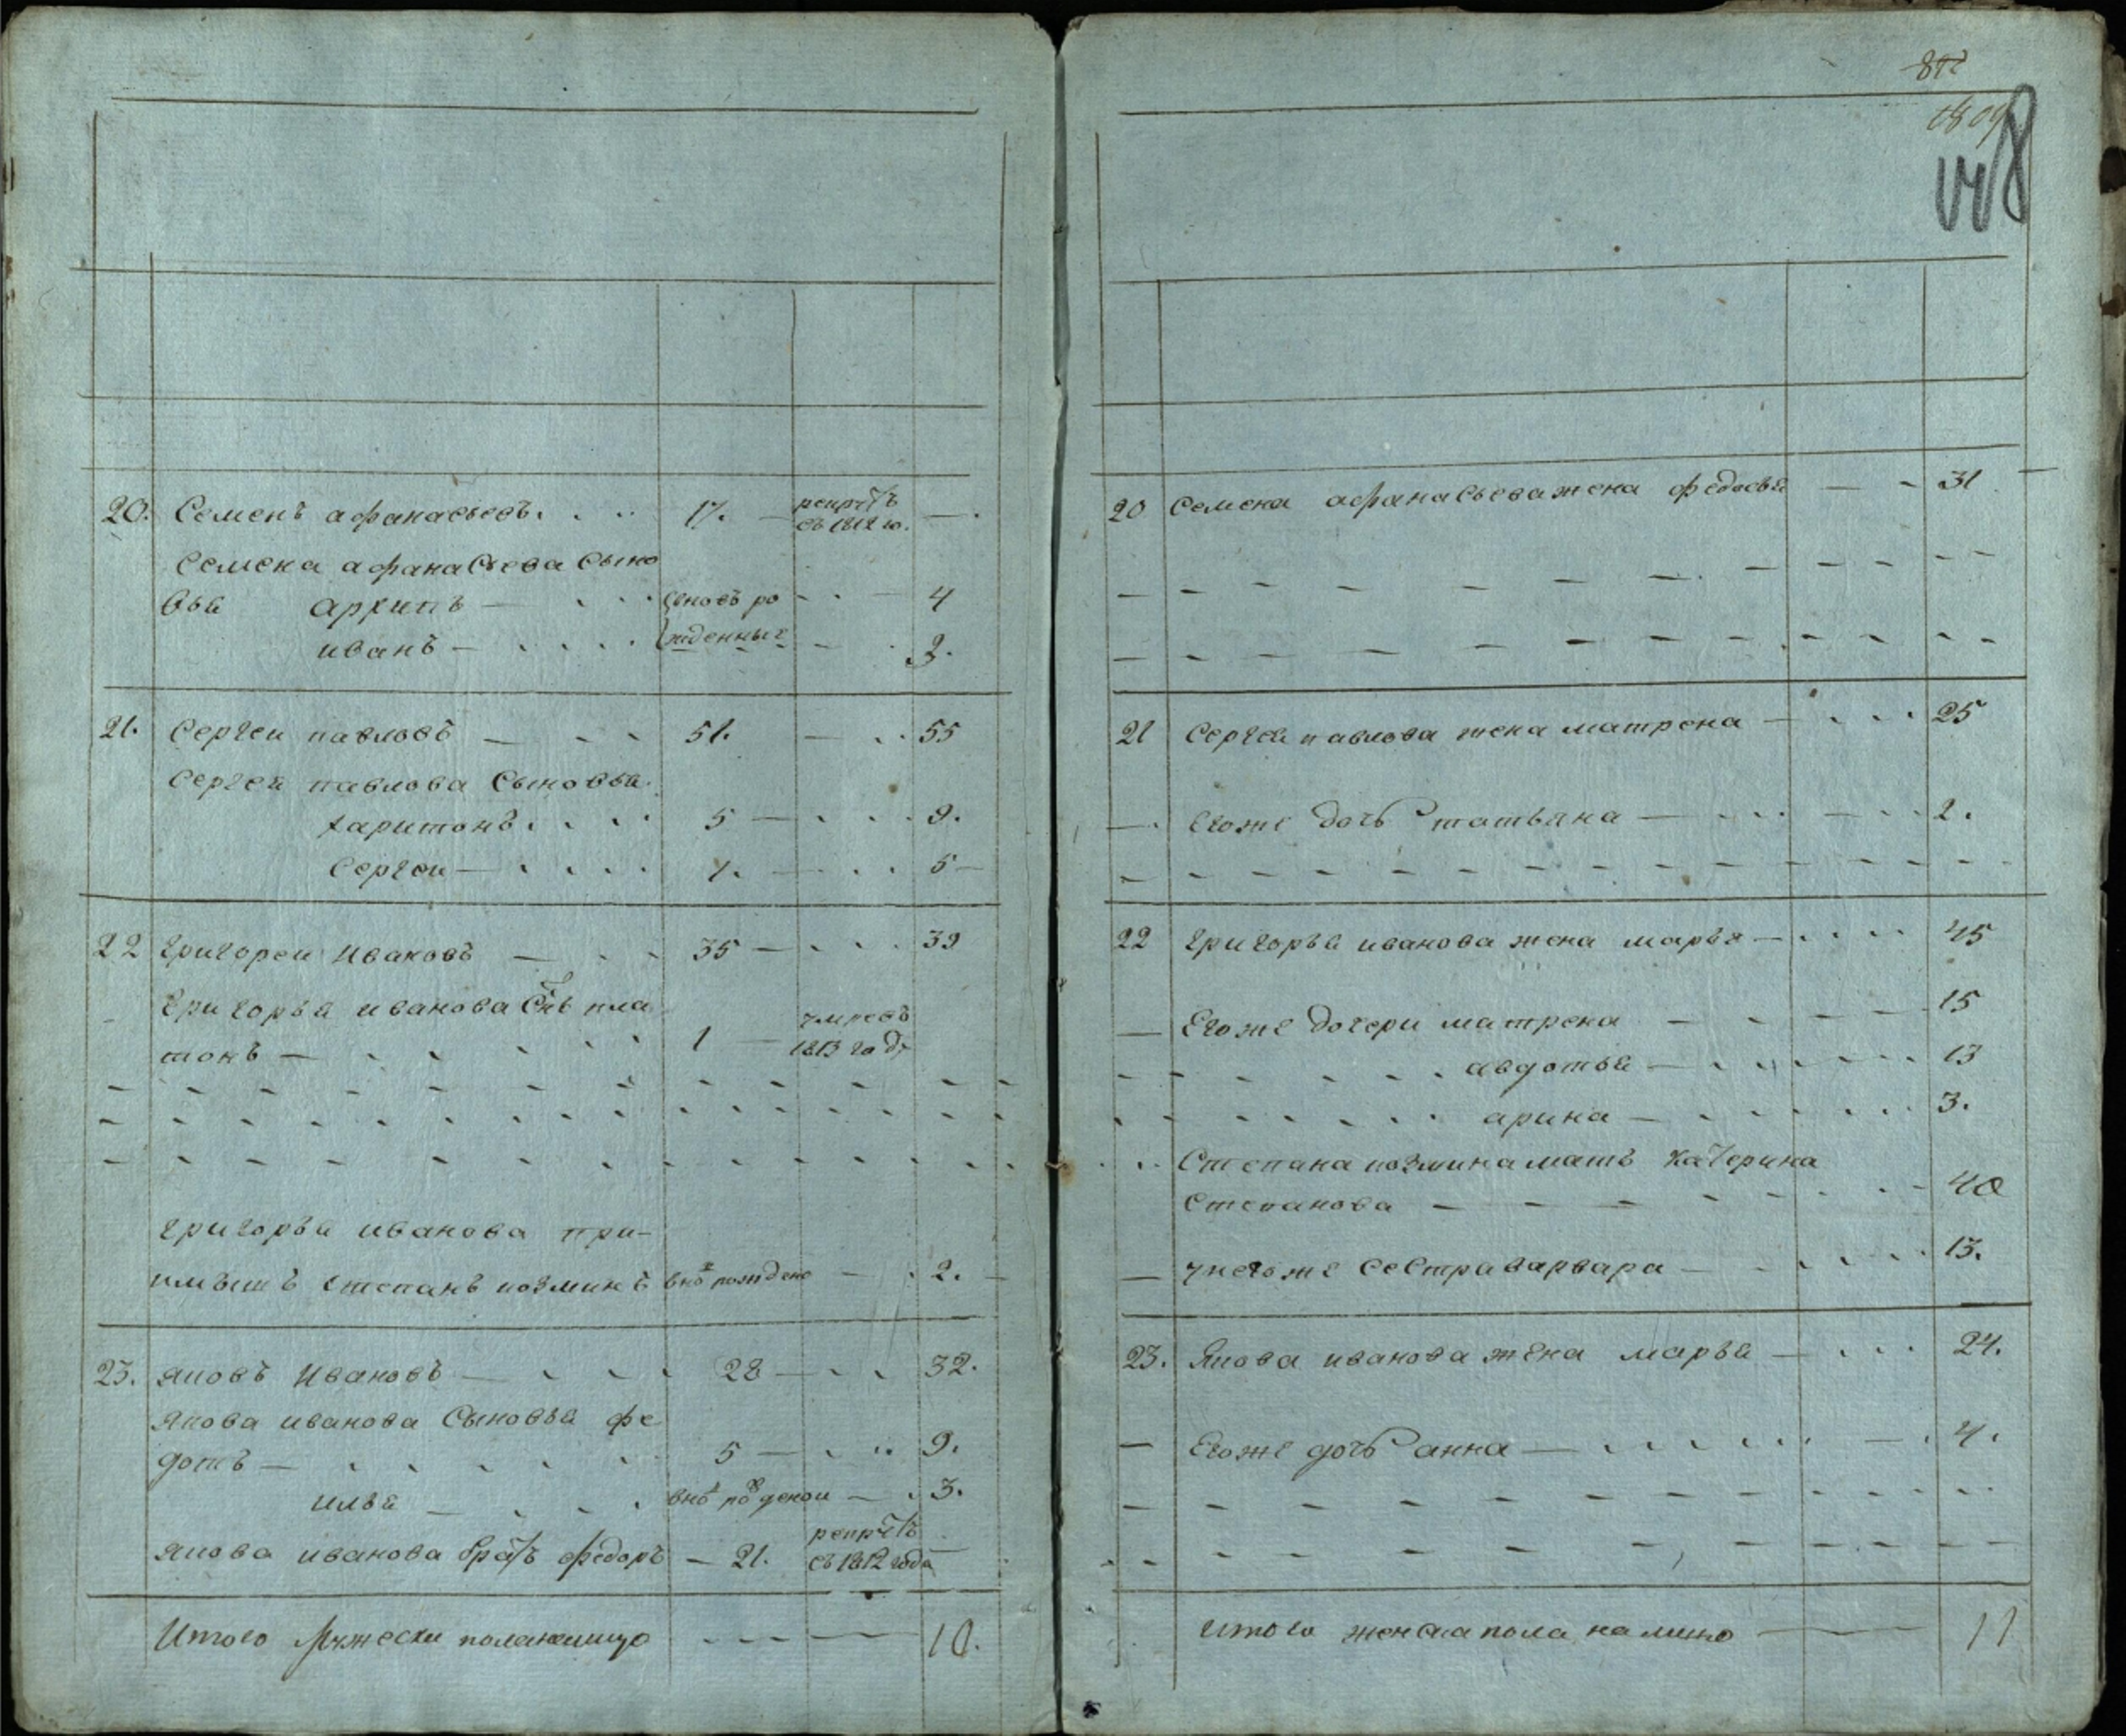 20. Семенъ афанасьевъ 17. рекрутъ
съ 1812 го.
Семена афанасьева Сыно
вья архипъ вновь ро 4
иванъ жденные 3.
21. Сергеи павловъ 51. 55
Сергея павлова Сыновья
харитонъ 5 9.
Сергеи 1. 5
22 Григореи Ивановъ 35 39
Григорья иванова Снъ пла
тонъ 1 умре въ
1813 году
григорья иванова при-
имышъ степанъ козминъ внов рожден 2.
23. яковъ Ивановъ 28 32.
Якова иванова Сыновья фе
дотъ 5 9.
илья внов рожденои 3.
якова иванова братъ федоръ 21. рекрутъ
съ 1812 года
Итого Мужеска пола налицо 10.
148
20 Семена афанасьева жена федосья 31
21 Сергея павлова жена матрена 25
Егоже дочь татьяна 2.
22 григорья иванова жена марья 45
Егоже дочери матрена 15
авдотья 13
арина 3.
Степана козмина мать Катерина
Степанова 40
унегоже Сестра варвара 13.
23. Якова иванова жена марья 24.
Егоже дочь анна 4.
Итого женска пола налицо 11